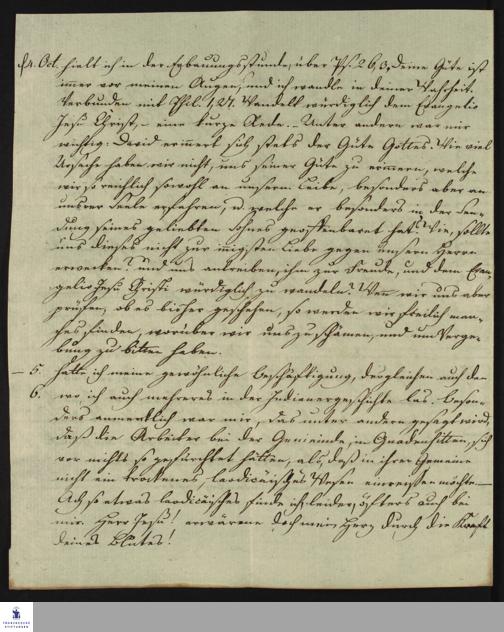 d. 4. Oct. hielt ich in der Erbauungsstunde, über Ps. 26,3, Deine Güte ist
immer vor meinen Augen, und ich wandle in deiner Wahrheit.
Verbunden mit Phil. 1,27. Wandelt würdiglich dem Evangelio
Jesu Christi, eine kurze Rede. Unter andern war mir
wichtig: David erinnert sich stets der Güte Gottes. Wie viel
Ursache haben wir nicht, uns seiner Güte zu erinnern, welche
wir so reichlich sowohl an unserm Leibe, besonders aber an
unsrer Seele erfahren, u. welche er besonders in der Sen-
dung seines geliebten Sohnes geoffenbaret hat. Wie, sollte
uns dieses nicht zur innigsten Liebe gegen unsern Herrn
erwecken? und uns antreiben, ihm zur Freude, und dem Evan-
gelio Jesu Christi würdiglich zu wandeln? Wenn wir uns aber
prüfen, ob es bisher geschehen, so werden wir freilich man-
ches finden, worüber wir uns zu schämen, und um Verge-
bung zu bitten haben.
— 5. Hatte ich meine gewöhnliche Beschäftigung, desgleichen auch de
6. wo ich auch mehreres in der Indianergeschichte las. Beson-
ders anmerklich war mir, das unter andern gesagt wird,
daß die Arbeiter bei der Gemeinde, in Gnadenhütten, sich
vor nichts so gefürchtet hätten, als, daß in ihrer Gemeine
nicht ein trockenes, laodicäisches Wesen einreissen möchte.
Ach so etwas laodicäisches finde ich leider, öfters auch bei
mir. Herr Jesu! erwärme doch mein Herz durch die Kraft
deines Blutes!
FRANCKESCHE
STIFTUNGEN